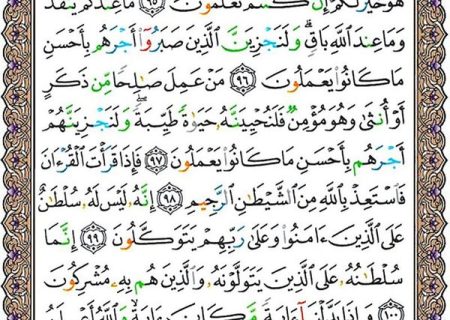 هُوَ خَيْرٌ لَّكُمْ إِن كُنتُمْ تَعْلَمُونَ ٩٥ مَا عِندَكُمْ يَنفَدُ
وَمَا عِندَ ٱللَّهِ بَاقٍ ۗ وَلَنَجْزِيَنَّ ٱلَّذِينَ صَبَرُوٓا۟ أَجْرَهُم بِأَحْسَنِ
مَا كَانُوا۟ يَعْمَلُونَ ٩٦ مَنْ عَمِلَ صَٰلِحًا مِّن ذَكَرٍ
أَوْ أُنثَىٰ وَهُوَ مُؤْمِنٌ فَلَنُحْيِيَنَّهُۥ حَيَوٰةً طَيِّبَةً ۖ وَلَنَجْزِيَنَّهُمْ
أَجْرَهُم بِأَحْسَنِ مَا كَانُوا۟ يَعْمَلُونَ ٩٧ فَإِذَا قَرَأْتَ ٱلْقُرْءَانَ
فَٱسْتَعِذْ بِٱللَّهِ مِنَ ٱلشَّيْطَٰنِ ٱلرَّجِيمِ ٩٨ إِنَّهُۥ لَيْسَ لَهُۥ سُلْطَٰنٌ
عَلَى ٱلَّذِينَ ءَامَنُوا۟ وَعَلَىٰ رَبِّهِمْ يَتَوَكَّلُونَ ٩٩ إِنَّمَا
سُلْطَٰنُهُۥ عَلَى ٱلَّذِينَ يَتَوَلَّوْنَهُۥ وَٱلَّذِينَ هُم بِهِۦ مُشْرِكُونَ
١٠٠ وَإِذَا بَدَّلْنَآ ءَايَةً مَّكَانَ ءَايَةٍ ۙ وَٱللَّهُ أَعْلَمُ